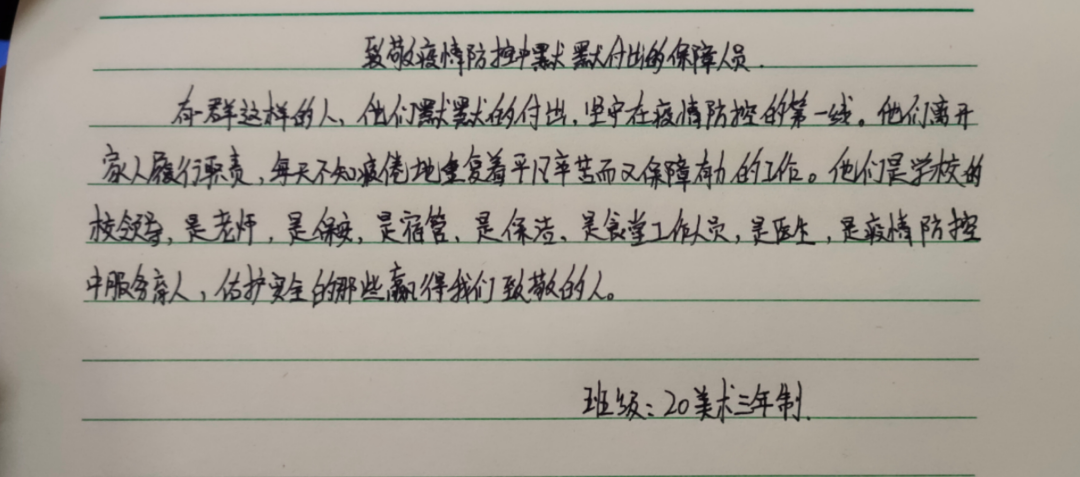 致敬疫情防控中默默付出的保障人员.
有一群这样的人、他们默默的付出,坚守在疫情防控的第一线。他们离开
家人履行职责,每天不知疲倦地重复着平凡辛苦而又保障有力的工作。他们是学校的
校领导,是老师,是保安,是宿管、是保洁、是食堂工作人员,是医生,是疫情防控
中服务育人,佑护安全的那些赢得我们致敬的人。
班级:20美术三年制.